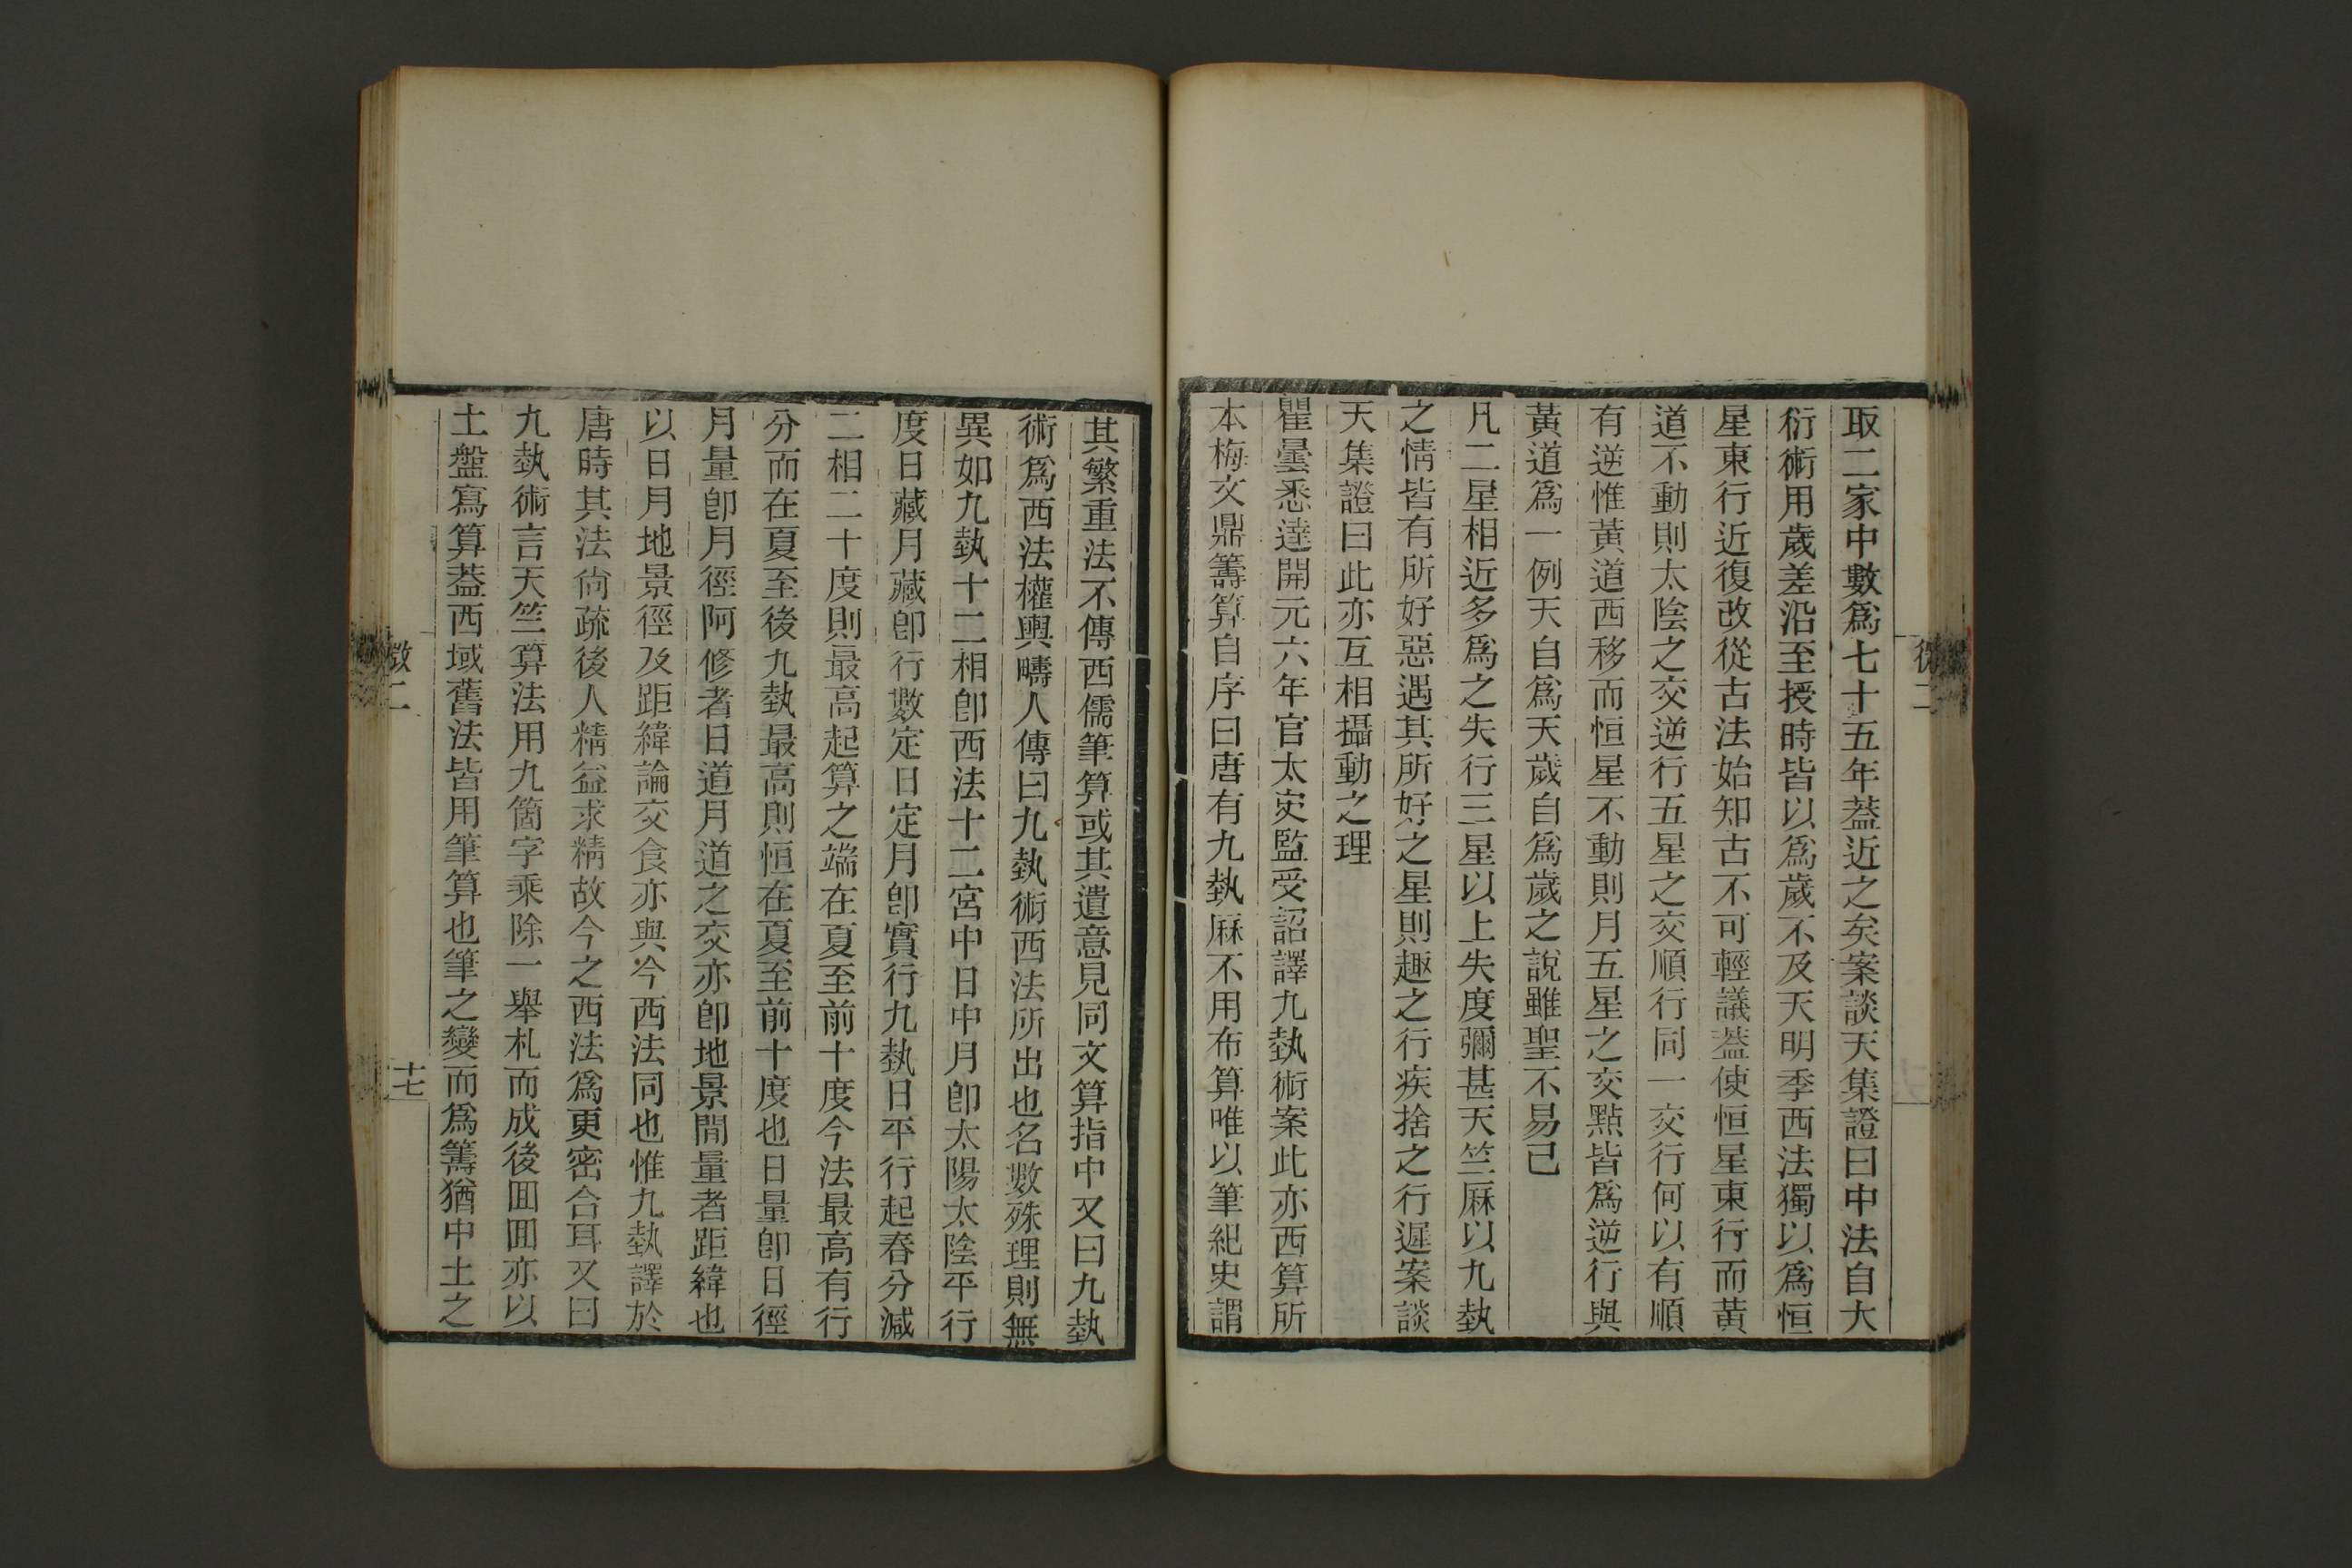 取二家中數爲七十五年葢近之矣案談天集證曰中法自大
衍術用歲差沿至授時皆以爲歲不及天明季西法獨以爲恒
星東行近復改從古法始知古不可輕議葢使恒星東行而黃
道不動則太陰之交逆行五星之交順行同一交行何以有順
有逆惟黃道西移而恒星不動則月五星之交點皆爲逆行與
黃道爲一例天自爲天歲自爲歲之說雖聖不易已
凡二星相近多爲之失行三星以上失度彌甚天竺厤以九執
之情皆有所好惡遇其所好之星則趣之行疾捨之行遲案談
天集證曰此亦互相攝動之理
瞿曇悉達開元六年官太史監受詔譯九執術案此亦西算所
本梅文鼎籌算自序曰唐有九執厤不用布算唯以筆紀史謂
其繁重法不傳西儒筆算或其遺意見同文算指中又曰九執
術爲西法權輿疇人傳曰九執術西法所出也名數殊理則無
異如九執十二相卽西法十二宮中日中月卽太陽太陰平行
度日藏月藏卽行數定日定月卽實行九執日平行起春分減
二相二十度則最高起算之端在夏至前十度今法最高有行
分而在夏至後九執最高則恒在夏至前十度也日量卽日徑
月量卽月徑阿修者日道月道之交亦卽地景閒量者距緯也
以日月地景徑及距緯論交食亦與今西法同也惟九執譯於
唐時其法尙疏後人精益求精故今之西法爲更密合耳又曰
九執術言天竺算法用九箇字乘除一舉札而成後囬囬亦以
土盤寫算葢西域舊法皆用筆算也筆之變而爲籌猶中土之
二
十七